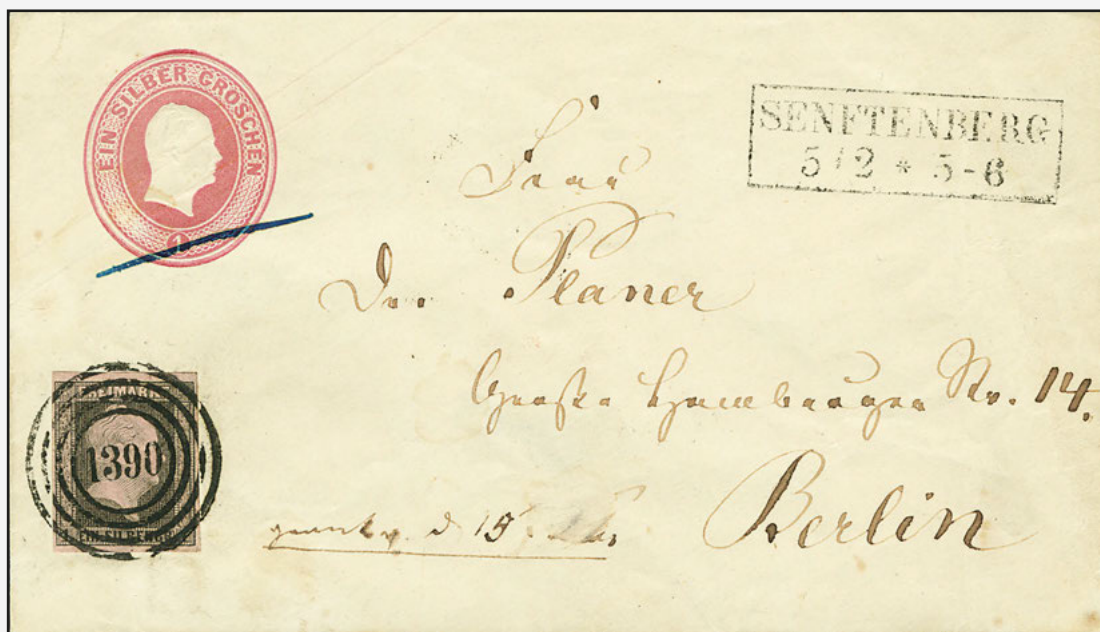 EIN SILBER GROSCHEN
1
SENFTENBERG
5/2 * 5-6
Frau
Dr. Planer
Große Hamburger Str. 14.
Berlin
FREIMARKE
1390